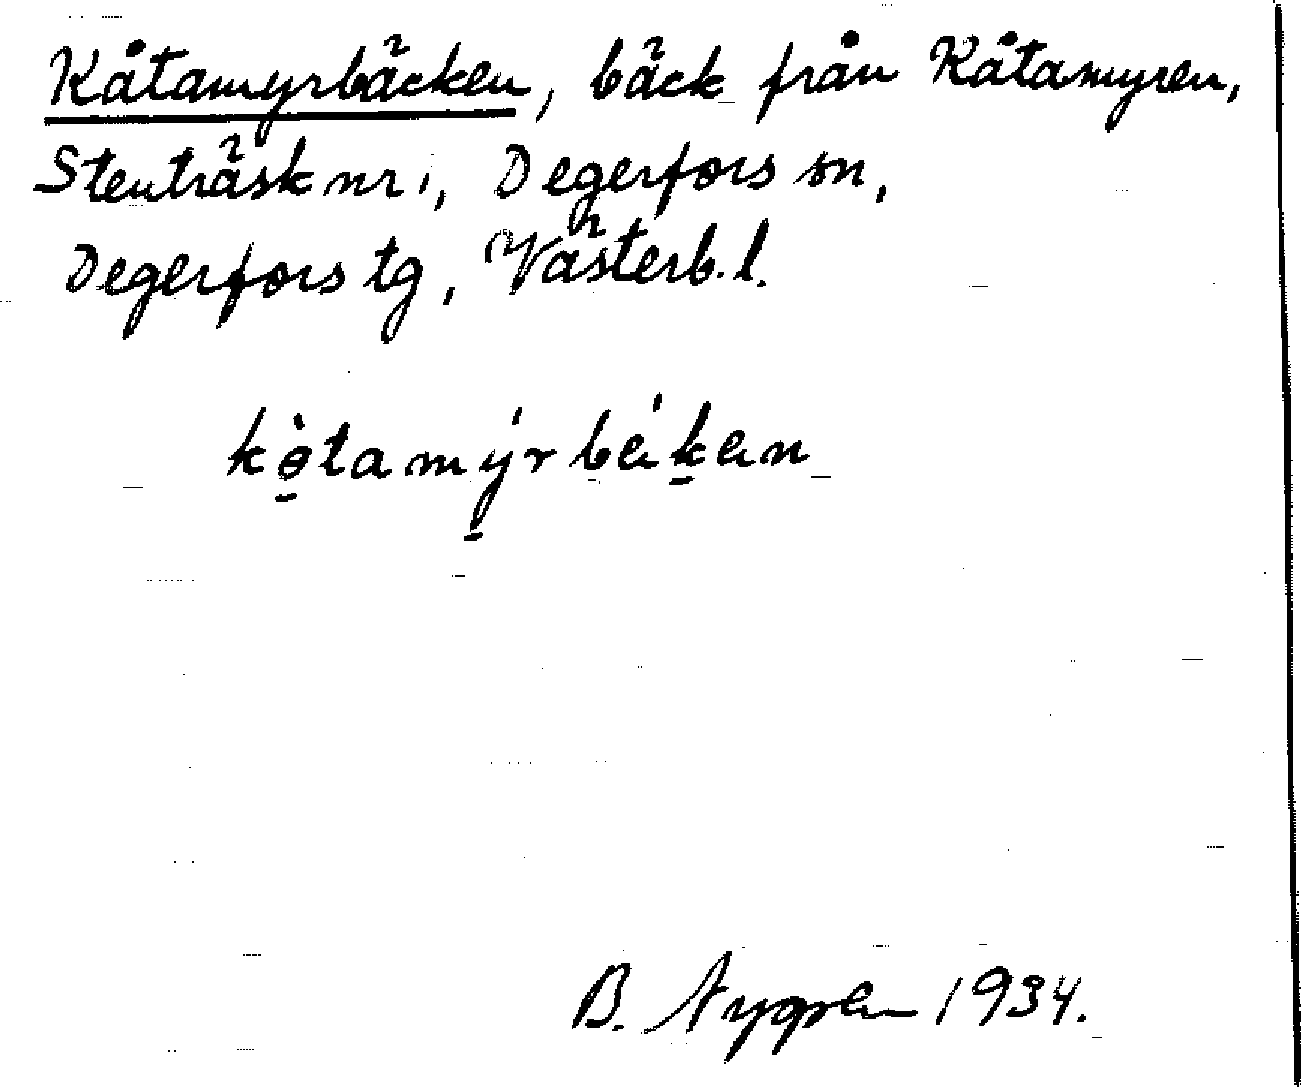 Kåtamyrbäcken, bäck från Kåtamyren,
Stenträsk nr 1, Degerfors sn,
Degerfors tg, Västerb. l.
B. Nygren 1934.